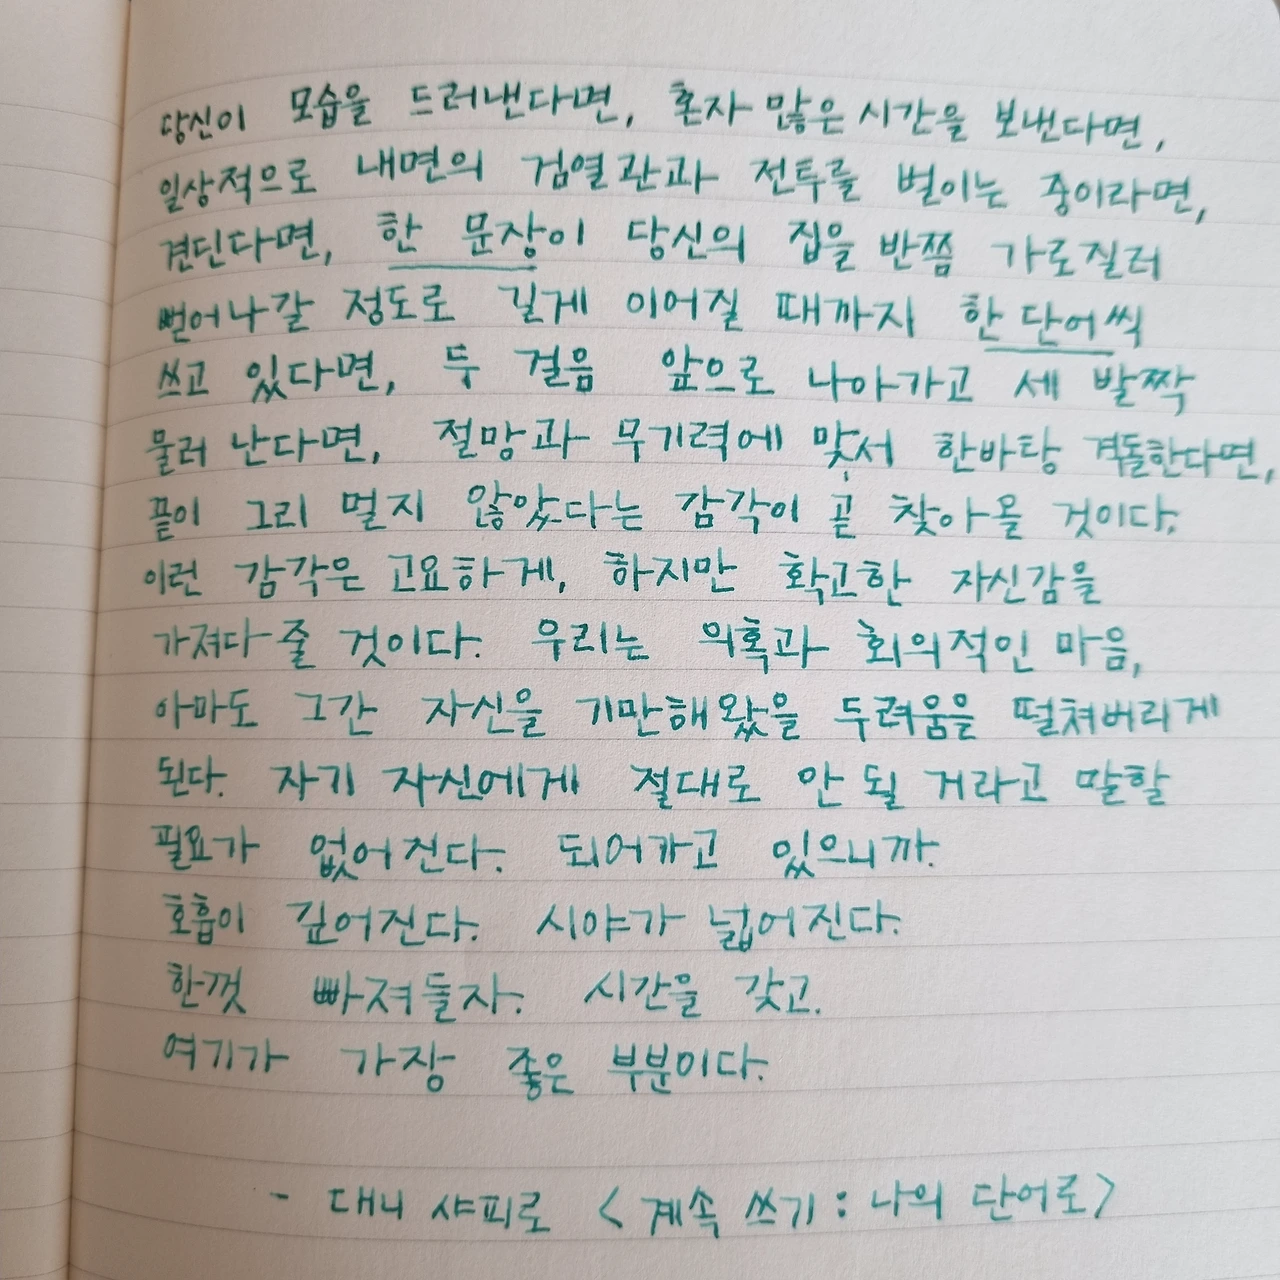 당신이 모습을 드러낸다면, 혼자 많은 시간을 보낸다면,
일상적으로 내면의 검열관과 전투를 벌이는 중이라면,
견딘다면, 한 문장이 당신의 집을 반쯤 가로질러
뻗어나갈 정도로 길게 이어질 때까지 한 단어씩
쓰고 있다면, 두 걸음 앞으로 나아가고 세 발짝
물러 난다면, 절망과 무기력에 맞서 한바탕 격돌한다면,
끝이 그리 멀지 않았다는 감각이 곧 찾아올 것이다.
이런 감각은 고요하게, 하지만 확고한 자신감을
가져다 줄 것이다. 우리는 의혹과 회의적인 마음,
아마도 그간 자신을 기만해왔을 두려움을 떨쳐버리게
된다. 자기 자신에게 절대로 안 될 거라고 말할
필요가 없어진다. 되어가고 있으니까.
호흡이 깊어진다. 시야가 넓어진다.
한껏 빠져들자. 시간을 갖고.
여기가 가장 좋은 부분이다.
- 대니 샤피로 <계속 쓰기 : 나의 단어로>